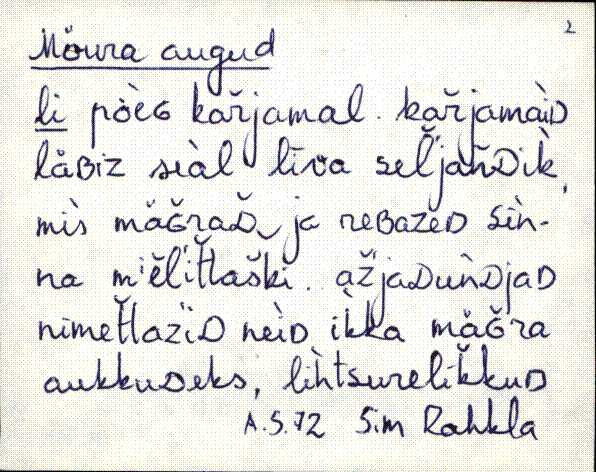 2
Mõura augud
li pòeG kařjamal. kařjamàiD
låBiZ seàl līva seľjaňDìk,
mìs mäǧraD ja reBazeD sìn-
na m'ěli't̆t̆aški. ažjaDuǹDjaD
nimet̆t̆azïD neìD ìkka mäǧra
aukkuDeks, lìhtsurelikkuD
A.S.72 Sim Rahkla